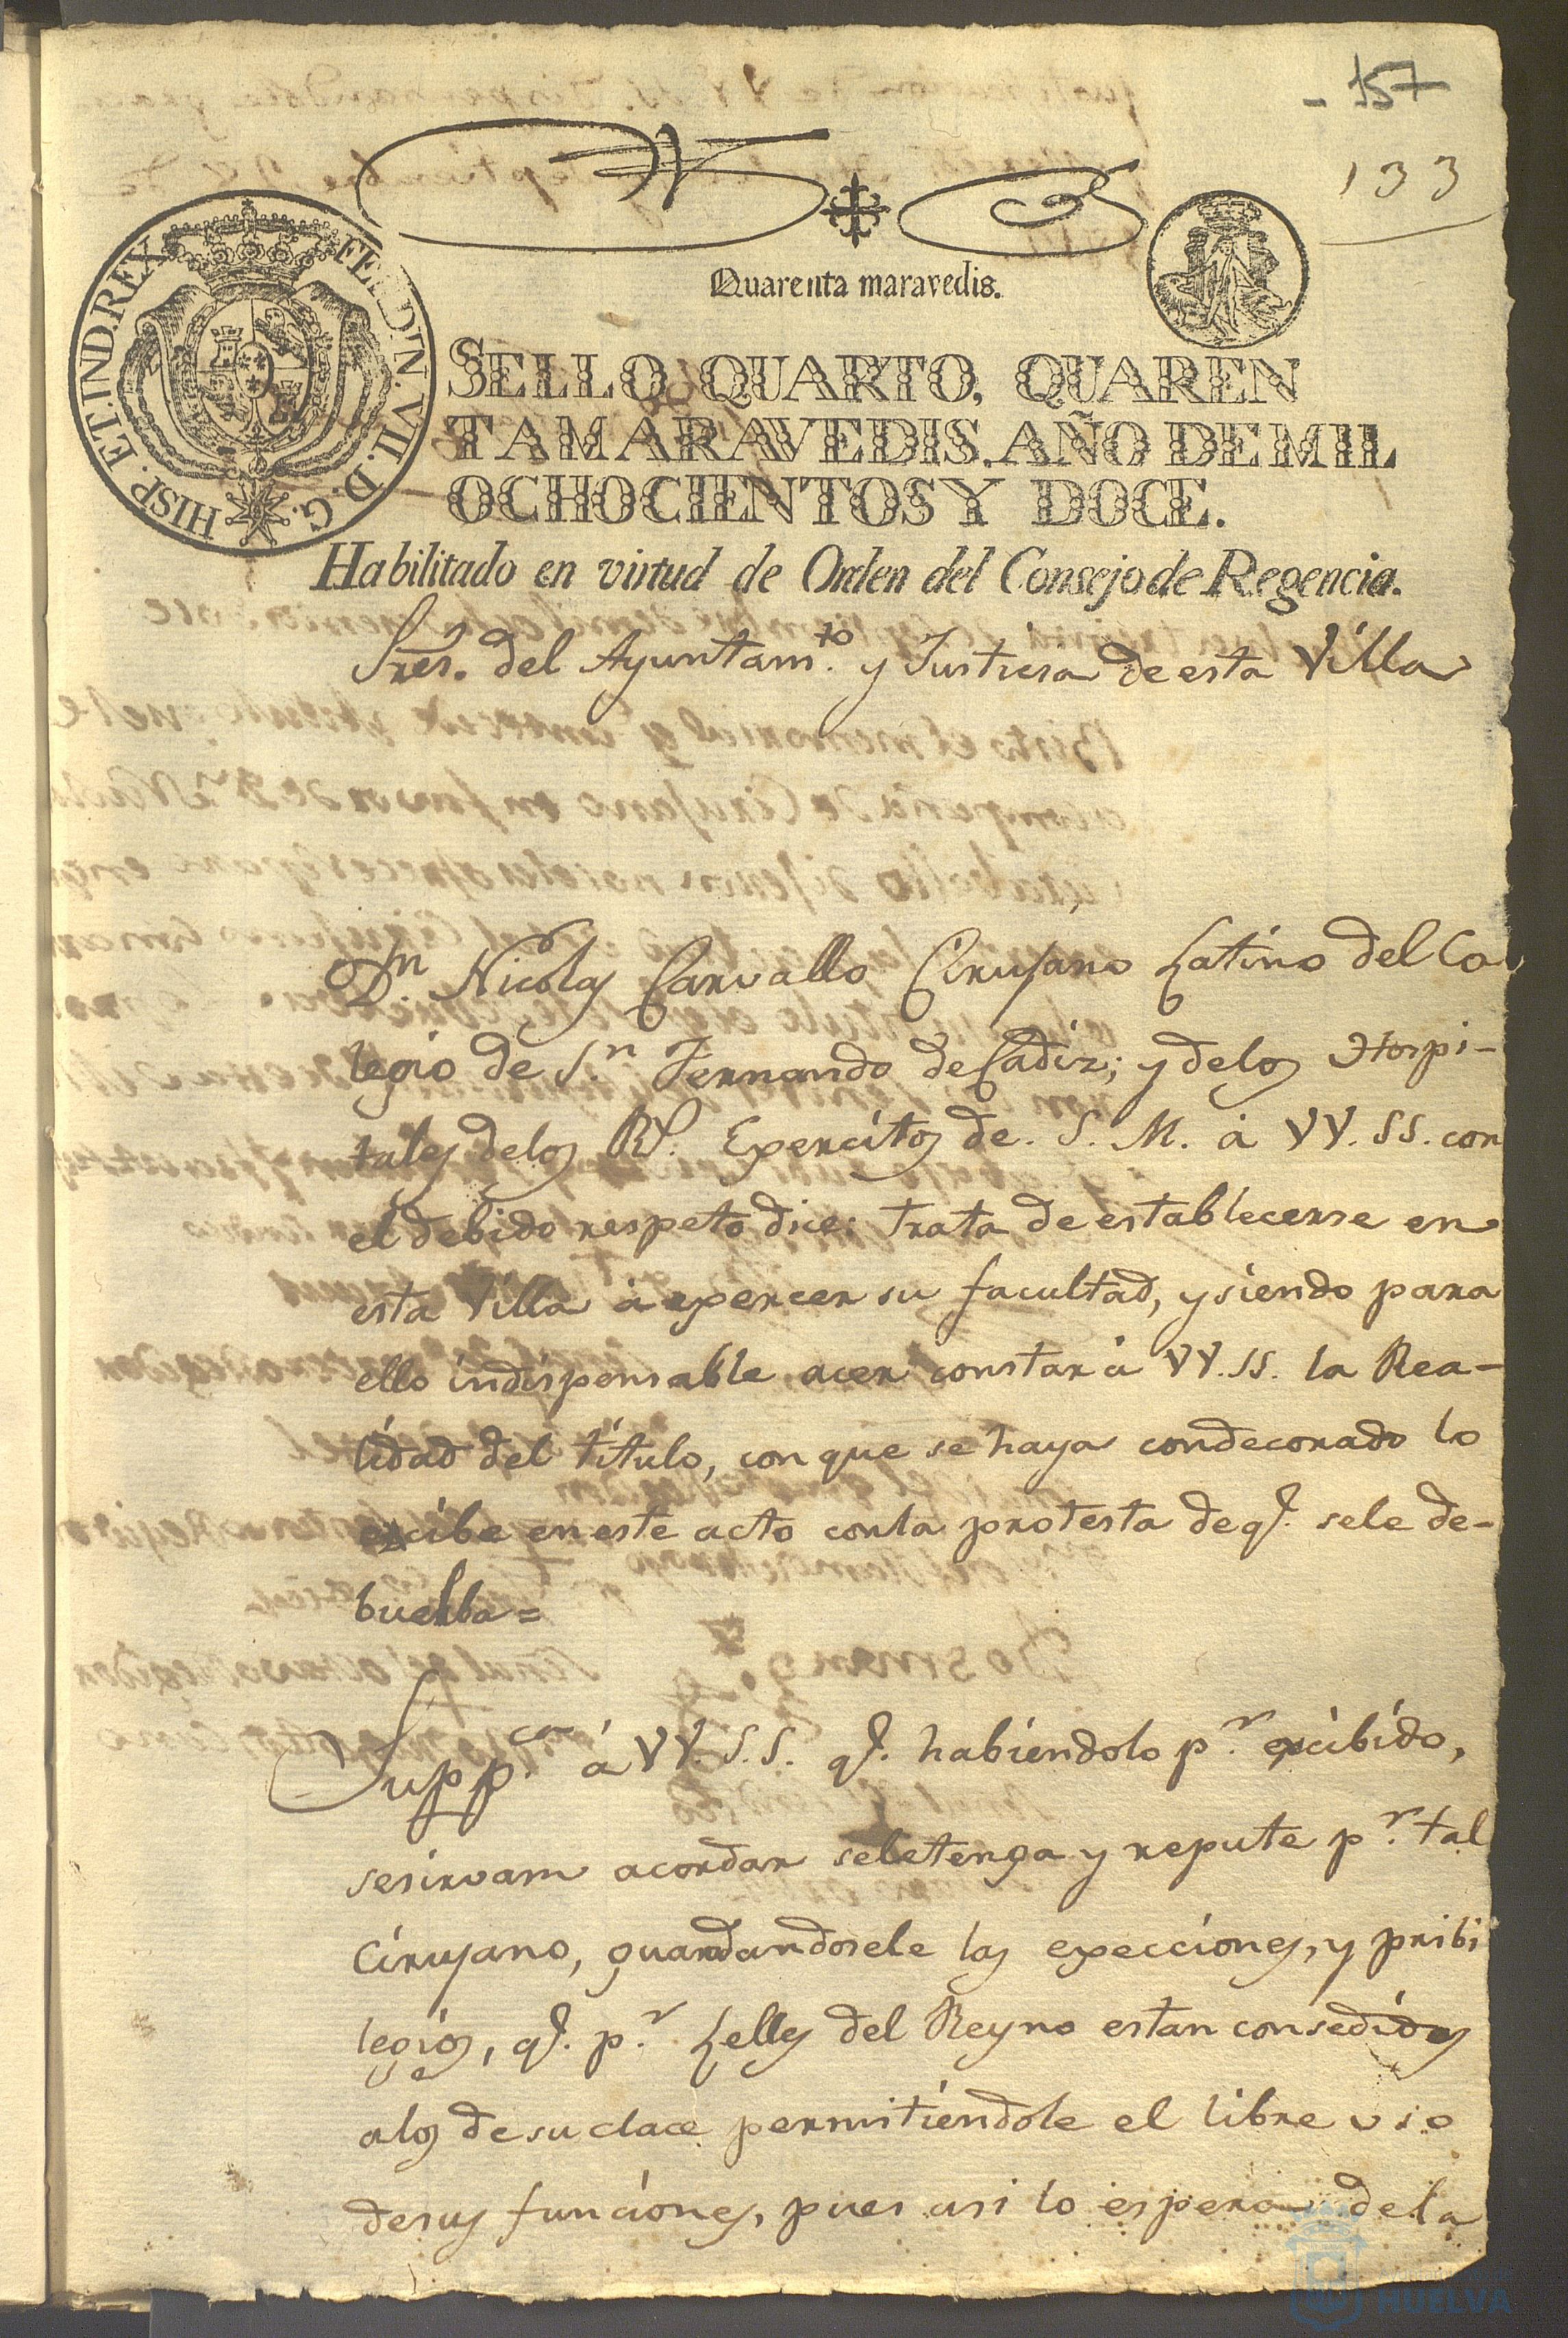 - 157
133
HISP. ET. IND. REX
FERDIN. VII. D. G.
Quarenta maravedis.
SELLO QUARTO, QUAREN
TA MARAVEDIS, AÑO DE MIL
OCHOCIENTOS Y DOCE.
Habilitado en virtud de Orden del Consejo de Regencia.
Sres. del Ayuntam.to y Justicia de esta Villa
Dn. Nicolas Carvallo Cirujano Latino del Co
legio de Sn. Fernando de Cadiz; y delos Hospi-
tales delos Rs. Exercitos de. S. M. á VV. SS. con
el debido respeto dice: trata de establecerse en
esta Villa á exercer su facultad, y siendo para
ello indispensable acer constar á VV. SS. la Rea-
lidad del titulo, con que se haya condecorado lo
excibe en este acto conla protesta de q.e sele de-
buelba =
Supp.ca á VV. S.S. q.e habiendolo p.r excibido,
sesirvam acordar seletenga y repute p.r tal
Cirujano, guardandosele las expecciones, y pribi
legios, q.e p.r Lelles del Reyno estan consedidos
alos de su clace permitiendole el libre uso
desus funciones, pues asi lo espera dela
HUELVA